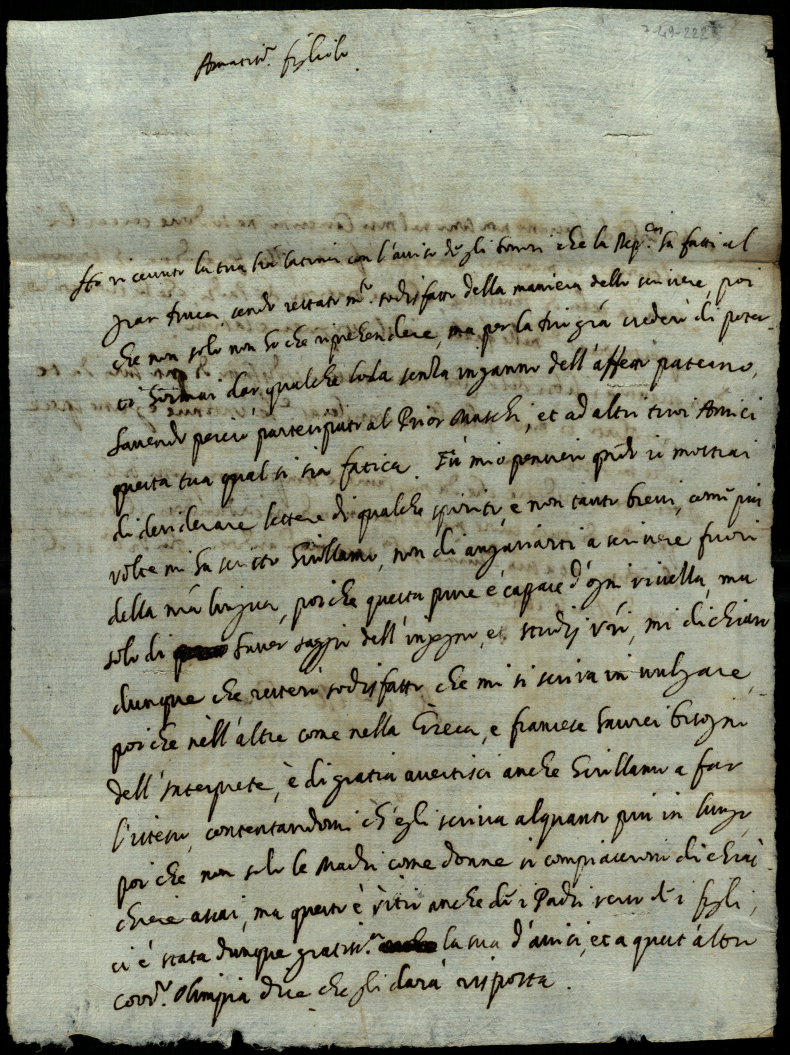 7-49-222
Amatiss.º figliolo
Ho ricevuto la tua l'rã latina con l'aviso dẽ gli honori che la Rep.ca ha fatti al
gran Duca, sendo restato m.to sodisfatto della maniera dello scrivere, poi
che non solo non ho che riprehendere, ma per la Dio grã crederò di poter-
ti hormai dar qualche loda senza inganno dell'affetto paterno,
havendo perciò participato al Prior Maschi, et ad altri tuoi Amici
questa tua qual si sia fatica. Fù mio pensiero qñdo ti mostrai
di desiderare lettere di qualche spirito, e non tanto brevi, come più
volte mi ha scritto Girillamo, non di angariarti a scrivere fuori
della nr̃a lingua, poi che questa pure è capace d'ogni rivella, ma
solo di haver saggio dell'ingegno, et studij vr̃i, mi dichiaro
dunque che resterò sodisfatto che mi si scriva in vulgare,
poi che nell'altre come nella Greca, e francese havrei bisogno
dell'Interprete, è di gratia avertisci anche Girillamo a far
l'istesso, contentandomi ch'egli scriva alquanto più in lungo
poi che non solo le Madri come donne si compiacciono di chiac-
chiere assai, ma questo è vitio anche dẽ i Padri verso dẽ i figli,
ci è stata dunque gratiss.ma la sua d'avisi, et a quest'altro
cord.º Olimpia dice che gli darà risposta.